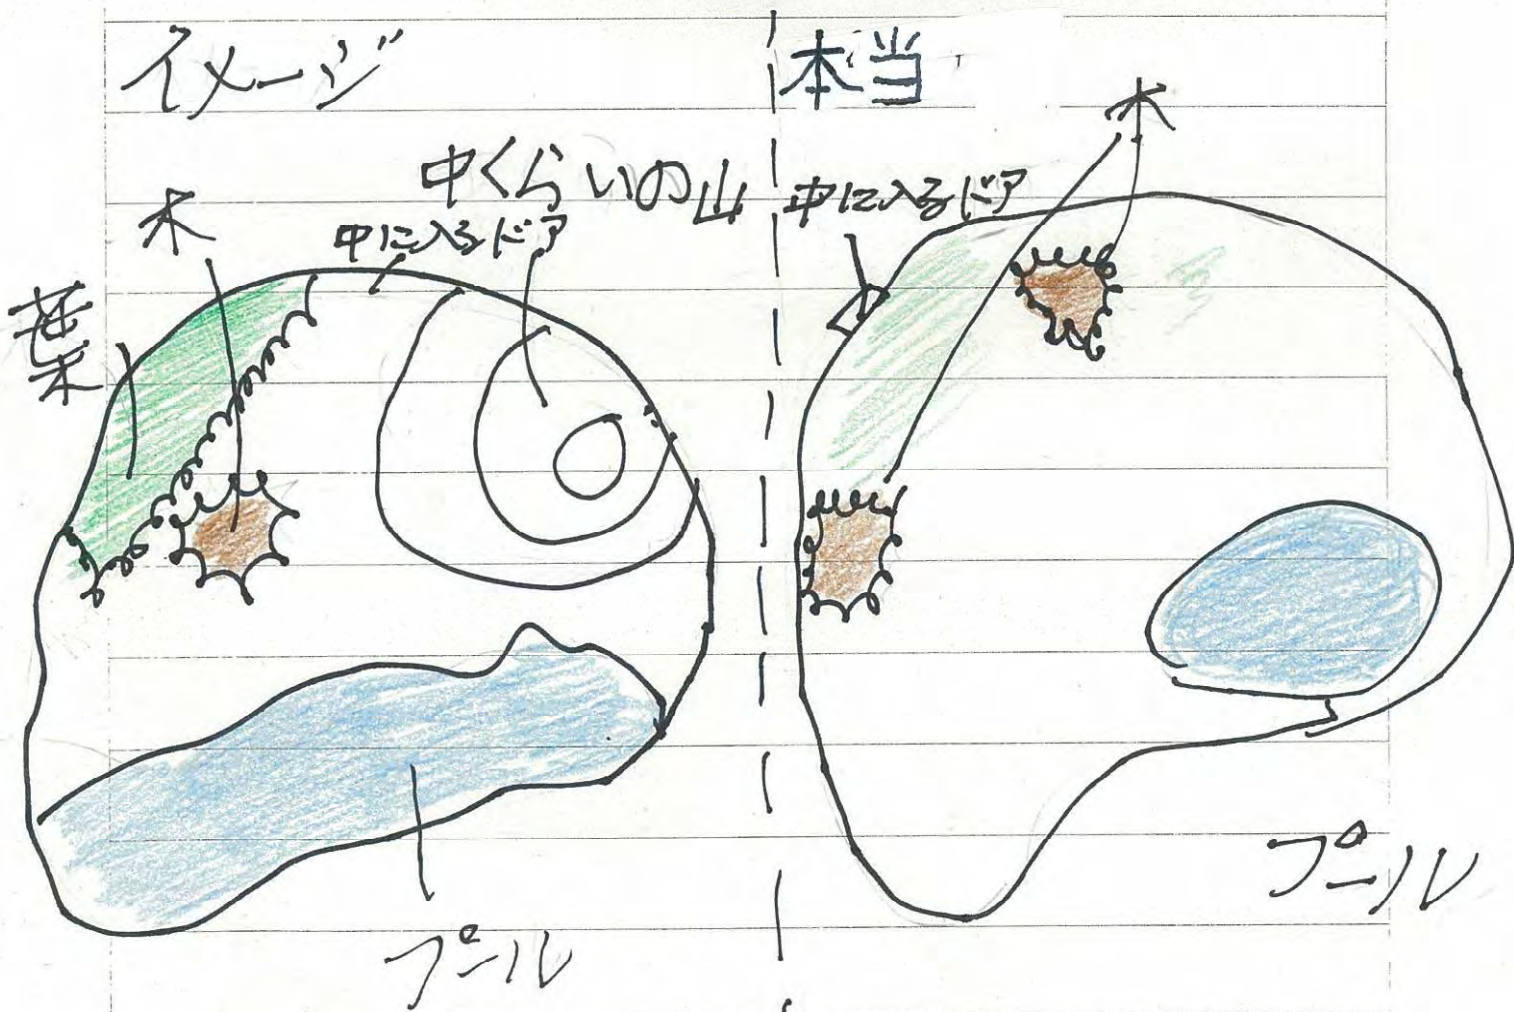 イメージ
木
中くらいの山
中に入るドア
葉
プール
本当
木
中に入るドア
プール